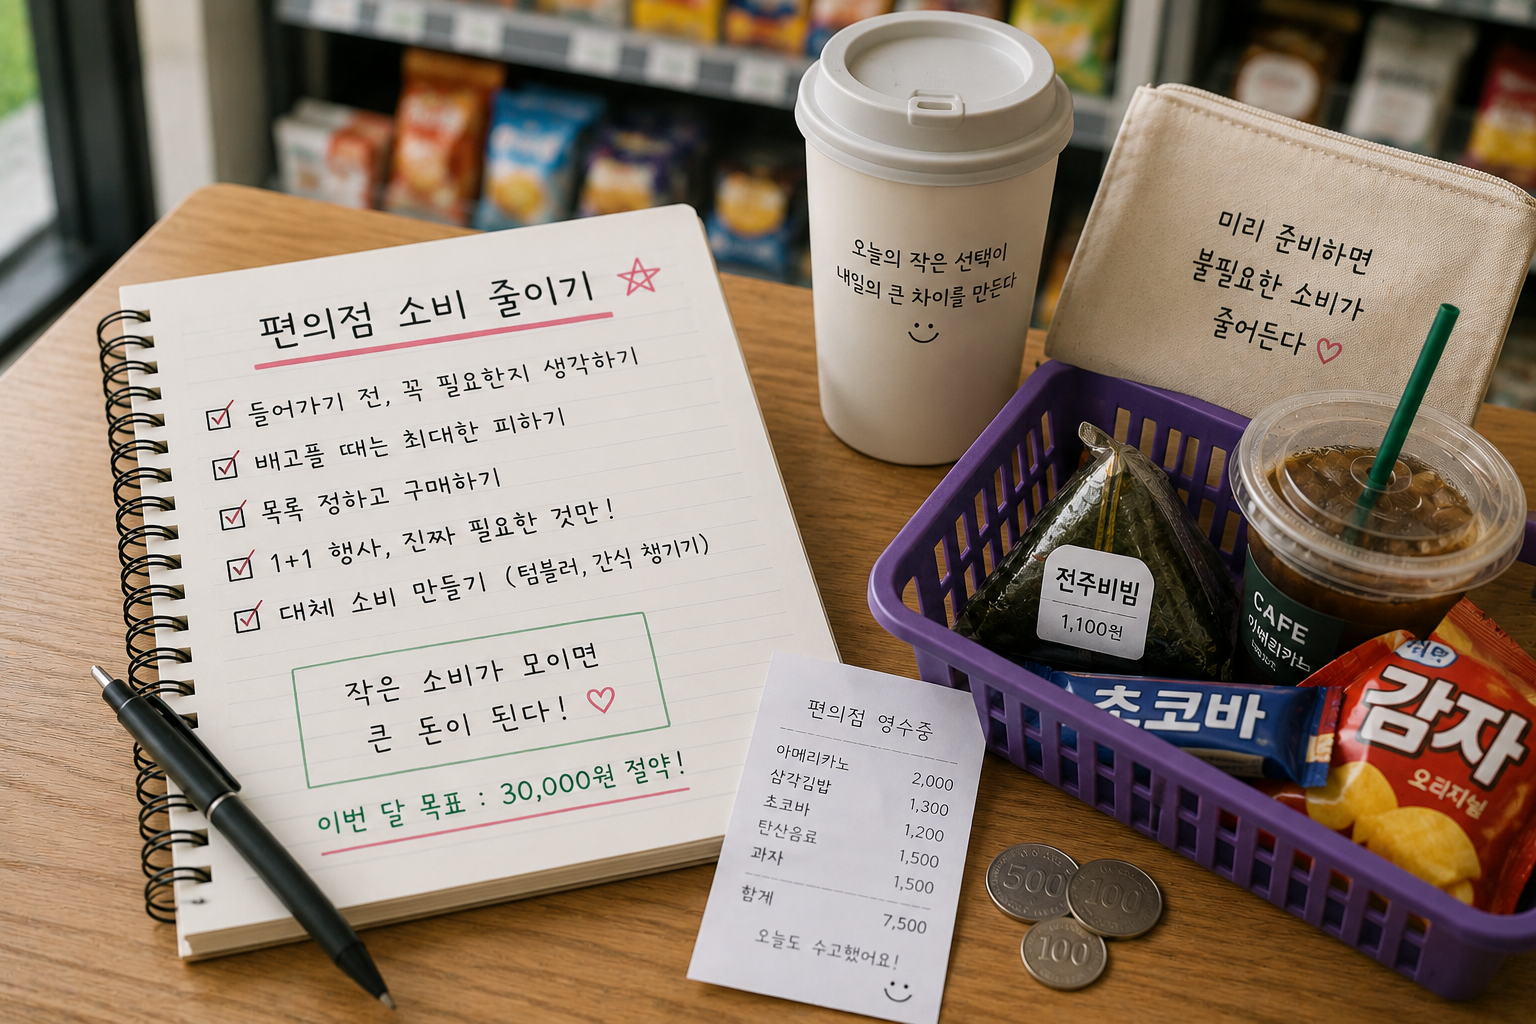 편의점 소비 줄이기
들어가기 전, 꼭 필요한지 생각하기
배고플 때는 최대한 피하기
목록 정하고 구매하기
1+1 행사, 진짜 필요한 것만!
대체 소비 만들기 (텀블러, 간식 챙기기)
작은 소비가 모이면
큰 돈이 된다!
이번 달 목표 : 30,000원 절약!
오늘의 작은 선택이
내일의 큰 차이를 만든다
미리 준비하면
불필요한 소비가
줄어든다
전주비빔
1,100원
CAFE
아메리카노
초코바
감자
오리지널
편의점 영수중
아메리카노 2,000
삼각김밥 1,300
초코바 1,200
탄산음료 1,500
과자 1,500
함계 7,500
오늘도 수고했어요!
500
100
100